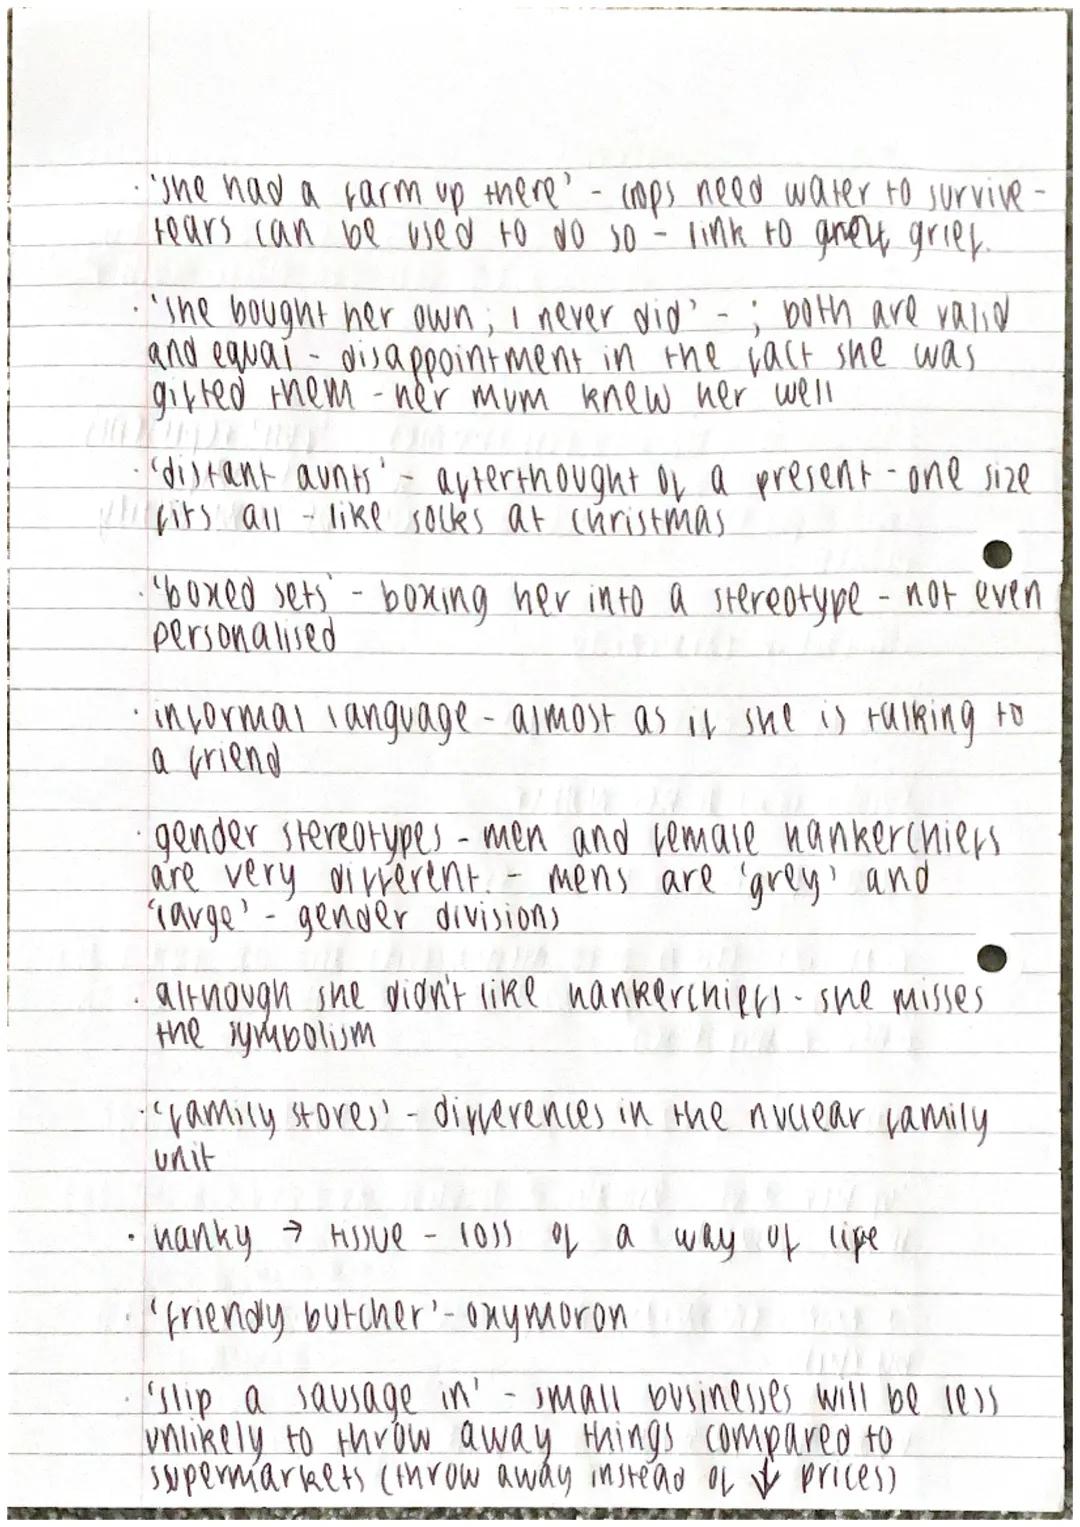 · 'she had a farm up there' - crops need water to survive -
tears can be used to do so - link to grief.
· 'she bought her own; I never did' - ; both are valid
and equal - disappointment in the fact she was
gifted them - her mum knew her well
· 'distant aunts' - afterthought of a present - one size
fits all - like socks at christmas
· 'boxed sets' - boxing her into a stereotype - not even
personalised
· informal language - almost as if she is talking to
a friend
· gender stereotypes - men and female hankerchiefs
are very different. - mens are 'grey' and
'large' - gender divisions
· although she didn't like hankerchiefs - she misses
the symbolism
· 'family stores' - differences in the nuclear family
unit
· hanky → tissue - loss of a way of life
· 'friendly butcher' - oxymoron
· 'slip a sausage in' - small businesses will be less
unlikely to throw away things compared to
supermarkets (throw away instead of ↓ prices)